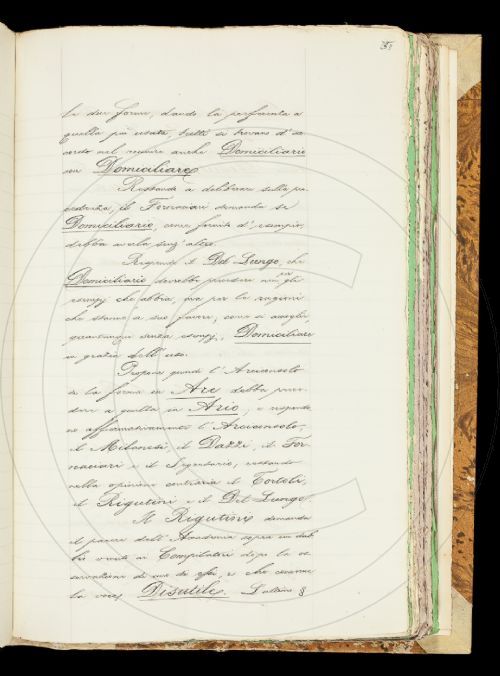 le due forme, dando la preferenza a
quella più usata, tutti si trovano d'ac
cordo nel mettere anche Domiciliario
con Domiciliare.
Restando a deliberare sulla pre
cedenza, il Fornaciari domanda se
Domiciliario, come fornito d'esempio,
debba averla senz'altro.
Risponde il Del Lungo, che
Domiciliario dovrebbe precedere non per gli
esempj che abbia, ma per le ragioni
che stanno a suo favore, come si accoglie,
quantunque senza esempj, Domiciliare
in grazia dell'uso.
Propone quindi l'Arciconsolo
se la forma in Are debba prece
dere a quella in Ario; e rispondo
no affermativamente l'Arciconsolo,
il Milanesi, il Dazzi, il For
naciari e il Segretario, restando
nella opinione contraria il Tortoli,
il Rigutini e il Del Lungo.
Il Rigutini domanda
il parere dell'Accademia sopra un dub
bio venuto ai Compilatori dopo la
di una di esse, e che concerne
la voce Disutile. L'ultimo §